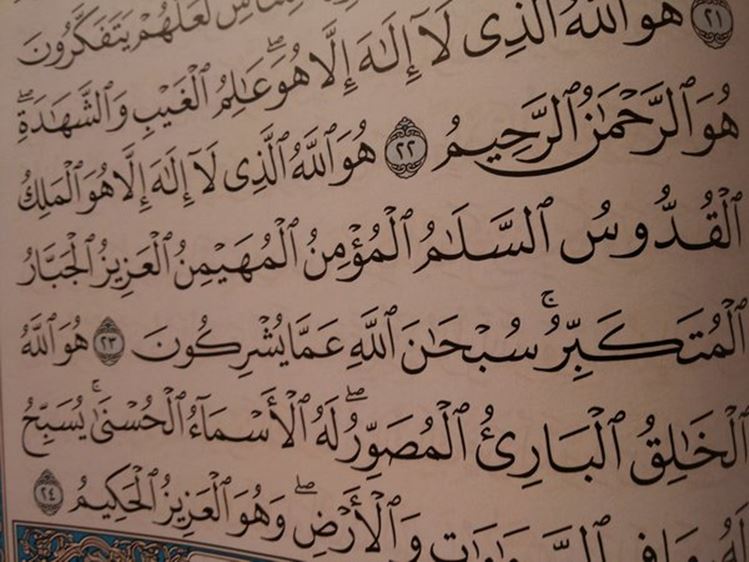 لَعَلَّهُمْ يَتَفَكَّرُونَ
٢١ هُوَ ٱللَّهُ ٱلَّذِى لَآ إِلَٰهَ إِلَّا هُوَ ۖ عَٰلِمُ ٱلْغَيْبِ وَٱلشَّهَٰدَةِ ۖ
هُوَ ٱلرَّحْمَٰنُ ٱلرَّحِيمُ ٢٢ هُوَ ٱللَّهُ ٱلَّذِى لَآ إِلَٰهَ إِلَّا هُوَ ٱلْمَلِكُ
ٱلْقُدُّوسُ ٱلسَّلَٰمُ ٱلْمُؤْمِنُ ٱلْمُهَيْمِنُ ٱلْعَزِيزُ ٱلْجَبَّارُ
ٱلْمُتَكَبِّرُ ۚ سُبْحَٰنَ ٱللَّهِ عَمَّا يُشْرِكُونَ ٢٣ هُوَ ٱللَّهُ
ٱلْخَٰلِقُ ٱلْبَارِئُ ٱلْمُصَوِّرُ ۖ لَهُ ٱلْأَسْمَآءُ ٱلْحُسْنَىٰ ۚ يُسَبِّحُ
لَهُۥ مَا فِى ٱلسَّمَٰوَٰتِ وَٱلْأَرْضِ ۖ وَهُوَ ٱلْعَزِيزُ ٱلْحَكِيمُ ٢٤